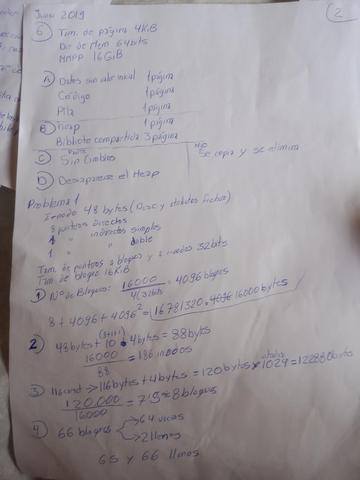 2
Junio 2019
6 Tam. de página 4KiB
Dir de Mem 64bits
MMPP 16GiB
A Datos sin valor inicial 1 página
Código 1 página
Pila 1 página
B Heap 1 página
Biblioteca compartida 3 página
C Sin Cambios
Hijo
Se copia y se elimina
D Desaparece el Heap
Problema 1
Inmodo 48 bytes (Desc y atributos fichero)
8 punteros directos
1 " indirectos simples
1 " " doble
Tam. de punteros a bloques y a inodos 32bits
Tam de bloque 16KiB
1 Nº de Bloques: 16000 / 4(32bits = 4096 bloques
8 + 4096 + 4096² = (16781320 · 16000 bytes
2) 48 bytes + 10 (8+1+1) · 4 bytes = 88 bytes
16000 / 88 = 186 inodos
3 116 bytes + 4 bytes = 120 bytes × 1024 = 122880 bytes
120.000 / 16000 = 7'5 ≈ 8 bloques
4 66 bloques → 64 vacios
→ 2 llenos
65 y 66 llenos